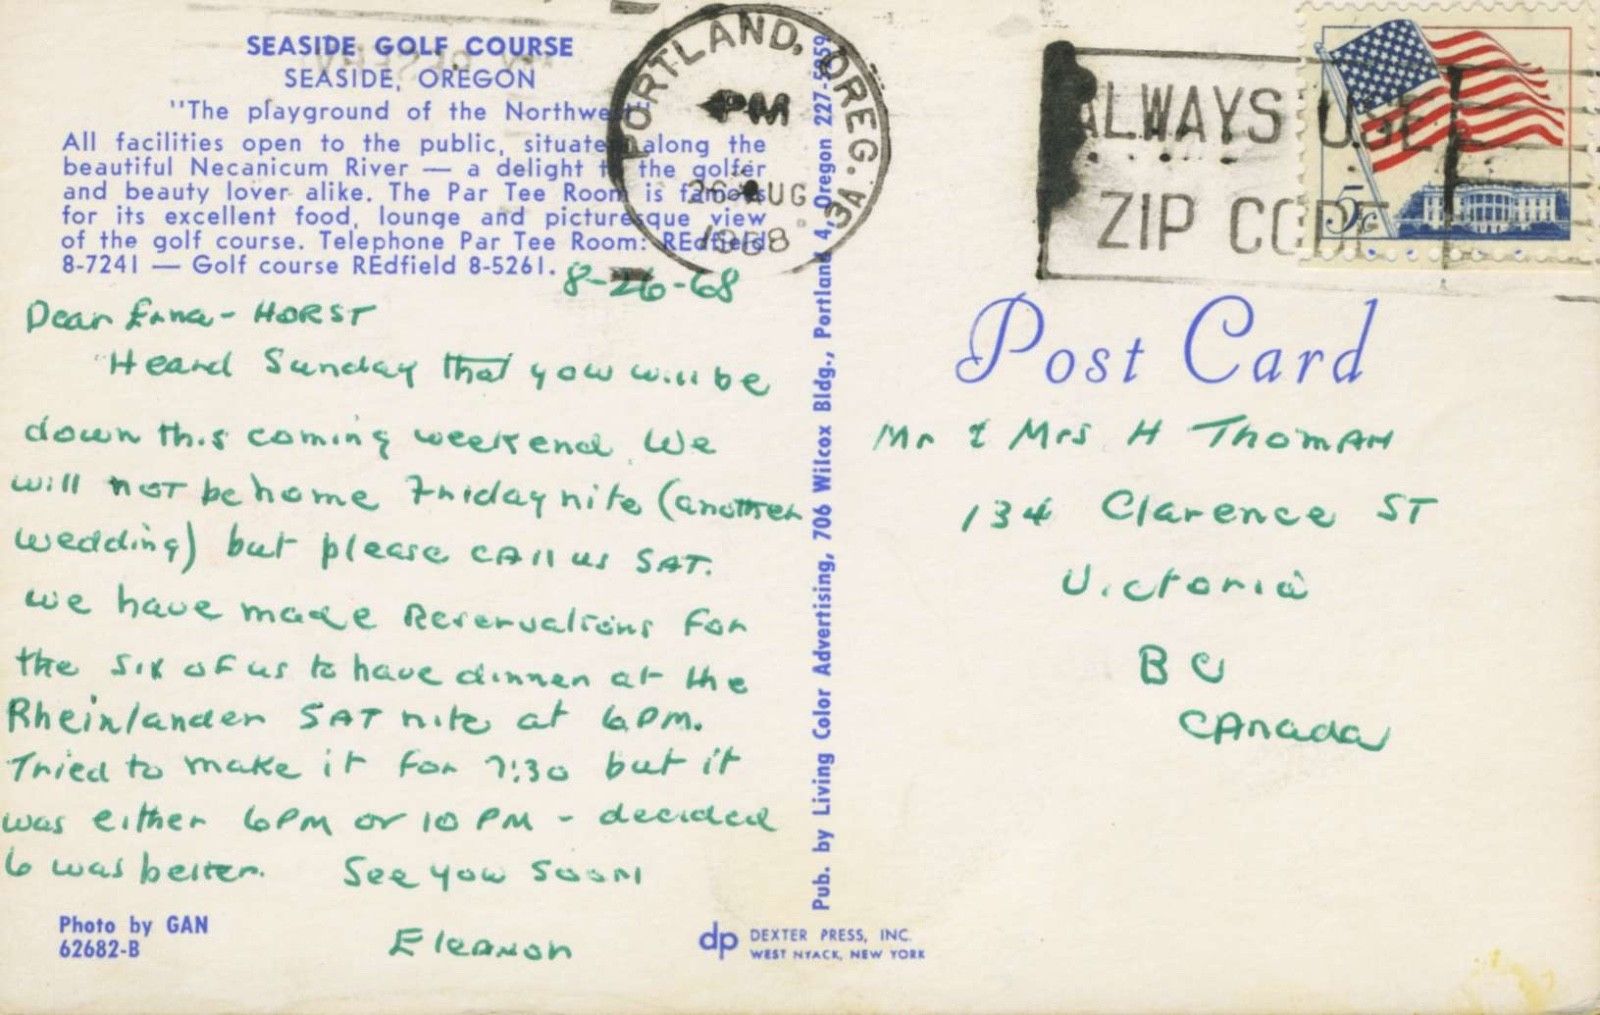 SEASIDE GOLF COURSE
SEASIDE, OREGON
"The playground of the Northwest"
All facilities open to the public, situated along the
beautiful Necanicum River — a delight to the golfer
and beauty lover alike. The Par Tee Room is famous
for its excellent food, lounge and picturesque view
of the golf course. Telephone Par Tee Room: REdfield
8-7241 — Golf course REdfield 8-5261.
8-26-68
Dear Erna - HORST
Heard Sunday that you will be
down this coming weekend. We
will NOT be home Friday nite (another
wedding) but please CAll us SAT.
we have made Reservations For
the six of us to have dinner at the
Rheinlander SAT nite at 6 PM.
Tried to make it for 7:30 but it
was either 6 PM or 10 PM - decided
6 was better. See you soon
Eleanor
Photo by GAN
62682-B
Pub. by Living Color Advertising, 706 Wilcox Bldg., Portland 4, Oregon 227-5859
dp DEXTER PRESS, INC.
WEST NYACK, NEW YORK
PORTLAND, OREG. 3A
PM
26 AUG
1968
ALWAYS USE
ZIP CODE
5c
Post Card
Mr & Mrs H Thoman
134 Clarence ST
Victoria
B C
CAnada